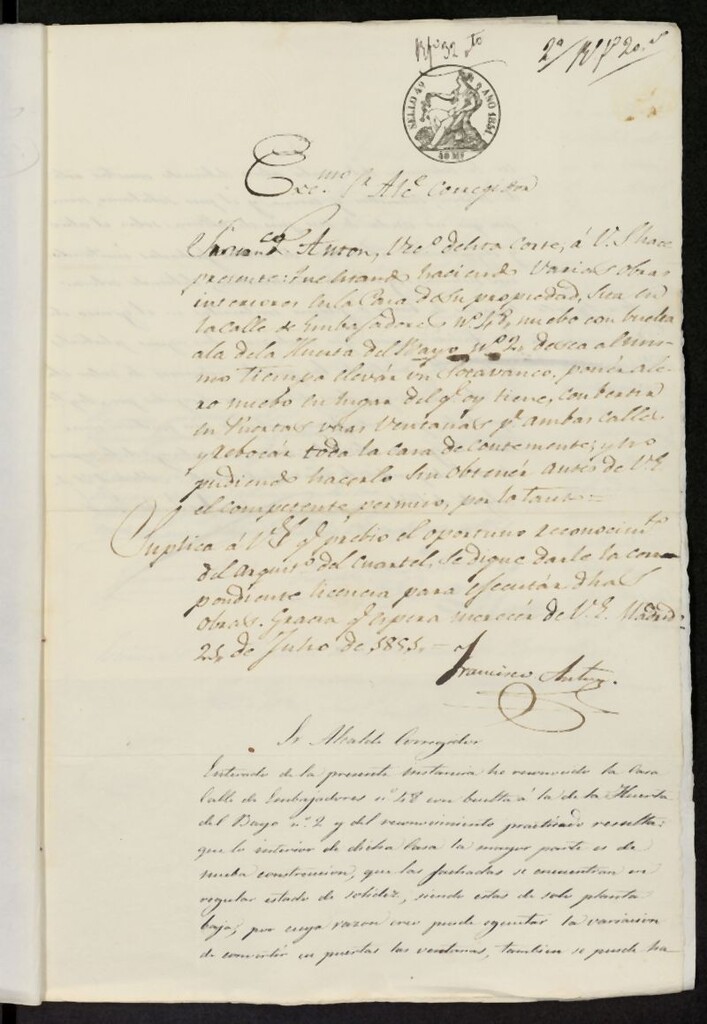 SELLO 4º AÑO 1851
40 Ms
Excmo. Sr. Alce. Corregidor
Francco. Anton, Veco. de esta Corte, á V. E. hace
presente: que estando haciendo varias obras
interiores en la Casa de su propiedad, sita en
la Calle de Embajadores nº. 48, nuebo con buelta
ala dela Huerta del Bayo nº. 2, desea al mis-
mo tiempo elevar un Sotavanco, poner ale-
ro nuebo en lugar del q. oy tiene, combertir
en Puertas varias Ventanas pr. ambas calles
y rebocár toda la Casa de contemente; y no
pudiendo hacerlo sin obtenér antes de V. E.
el competente permiso, por lo tanto=
Suplica á V. E. q. prebio el oportuno reconocimto.
del Arquito. del Cuartel, se digne darle la corres-
pondiente licencia para ejecutár dhas
obras. Gracia q. espera merecér de V. E. Madrid
25, de Julio de 1851,
Francisco Anton.
Sr. Alcalde Corregidor
Enterado de la presente instancia he reconocido la Casa
Calle de Embajadores nº 48 con buelta á la de la Huerta
del Bayo nº. 2 y del reconocimiento practicado resulta:
que lo interior de dicha Casa la mayor parte es de
nueba construccion, que las fachadas se encuentran en
regular estado de solidez, siendo estas de solo planta
baja, por cuya razon creo puede egecutar la variacion
de convertir en puertas las ventanas, tambien se puede ha-